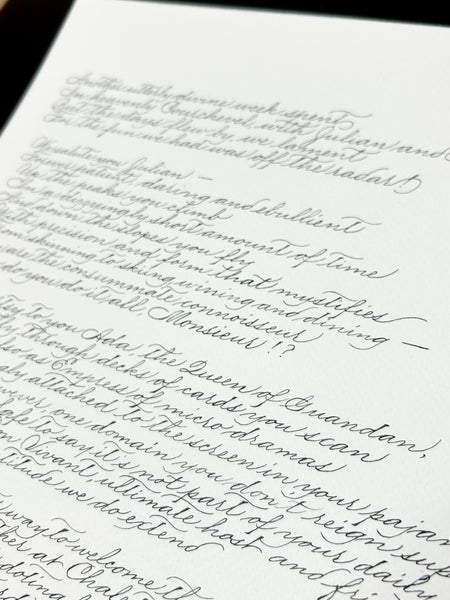 Another utterly divine week spent
In heavenly Courchevel, with Julian and
the days flew by we lament
For the fun we had was off the radar!)
We salute you Julian —
Forever patient, daring and ebullient
Up the peaks you climb
In a disgustingly short amount of time
And down the slopes you fly
With precision and form that mystifies
skinning to skiing, wining and dining —
are the consummate connoisseur
do you do it all, Monsieur!?
to you Ada, the Queen of Guandan,
through decks of cards you scan
Empress of micro dramas
attached to the screen in your pajam
one domain, you don't reign sup
safe to say it's not part of your daily
Vivant, ultimate host and fri
we do extend
way to welcome th
at Chal
doting